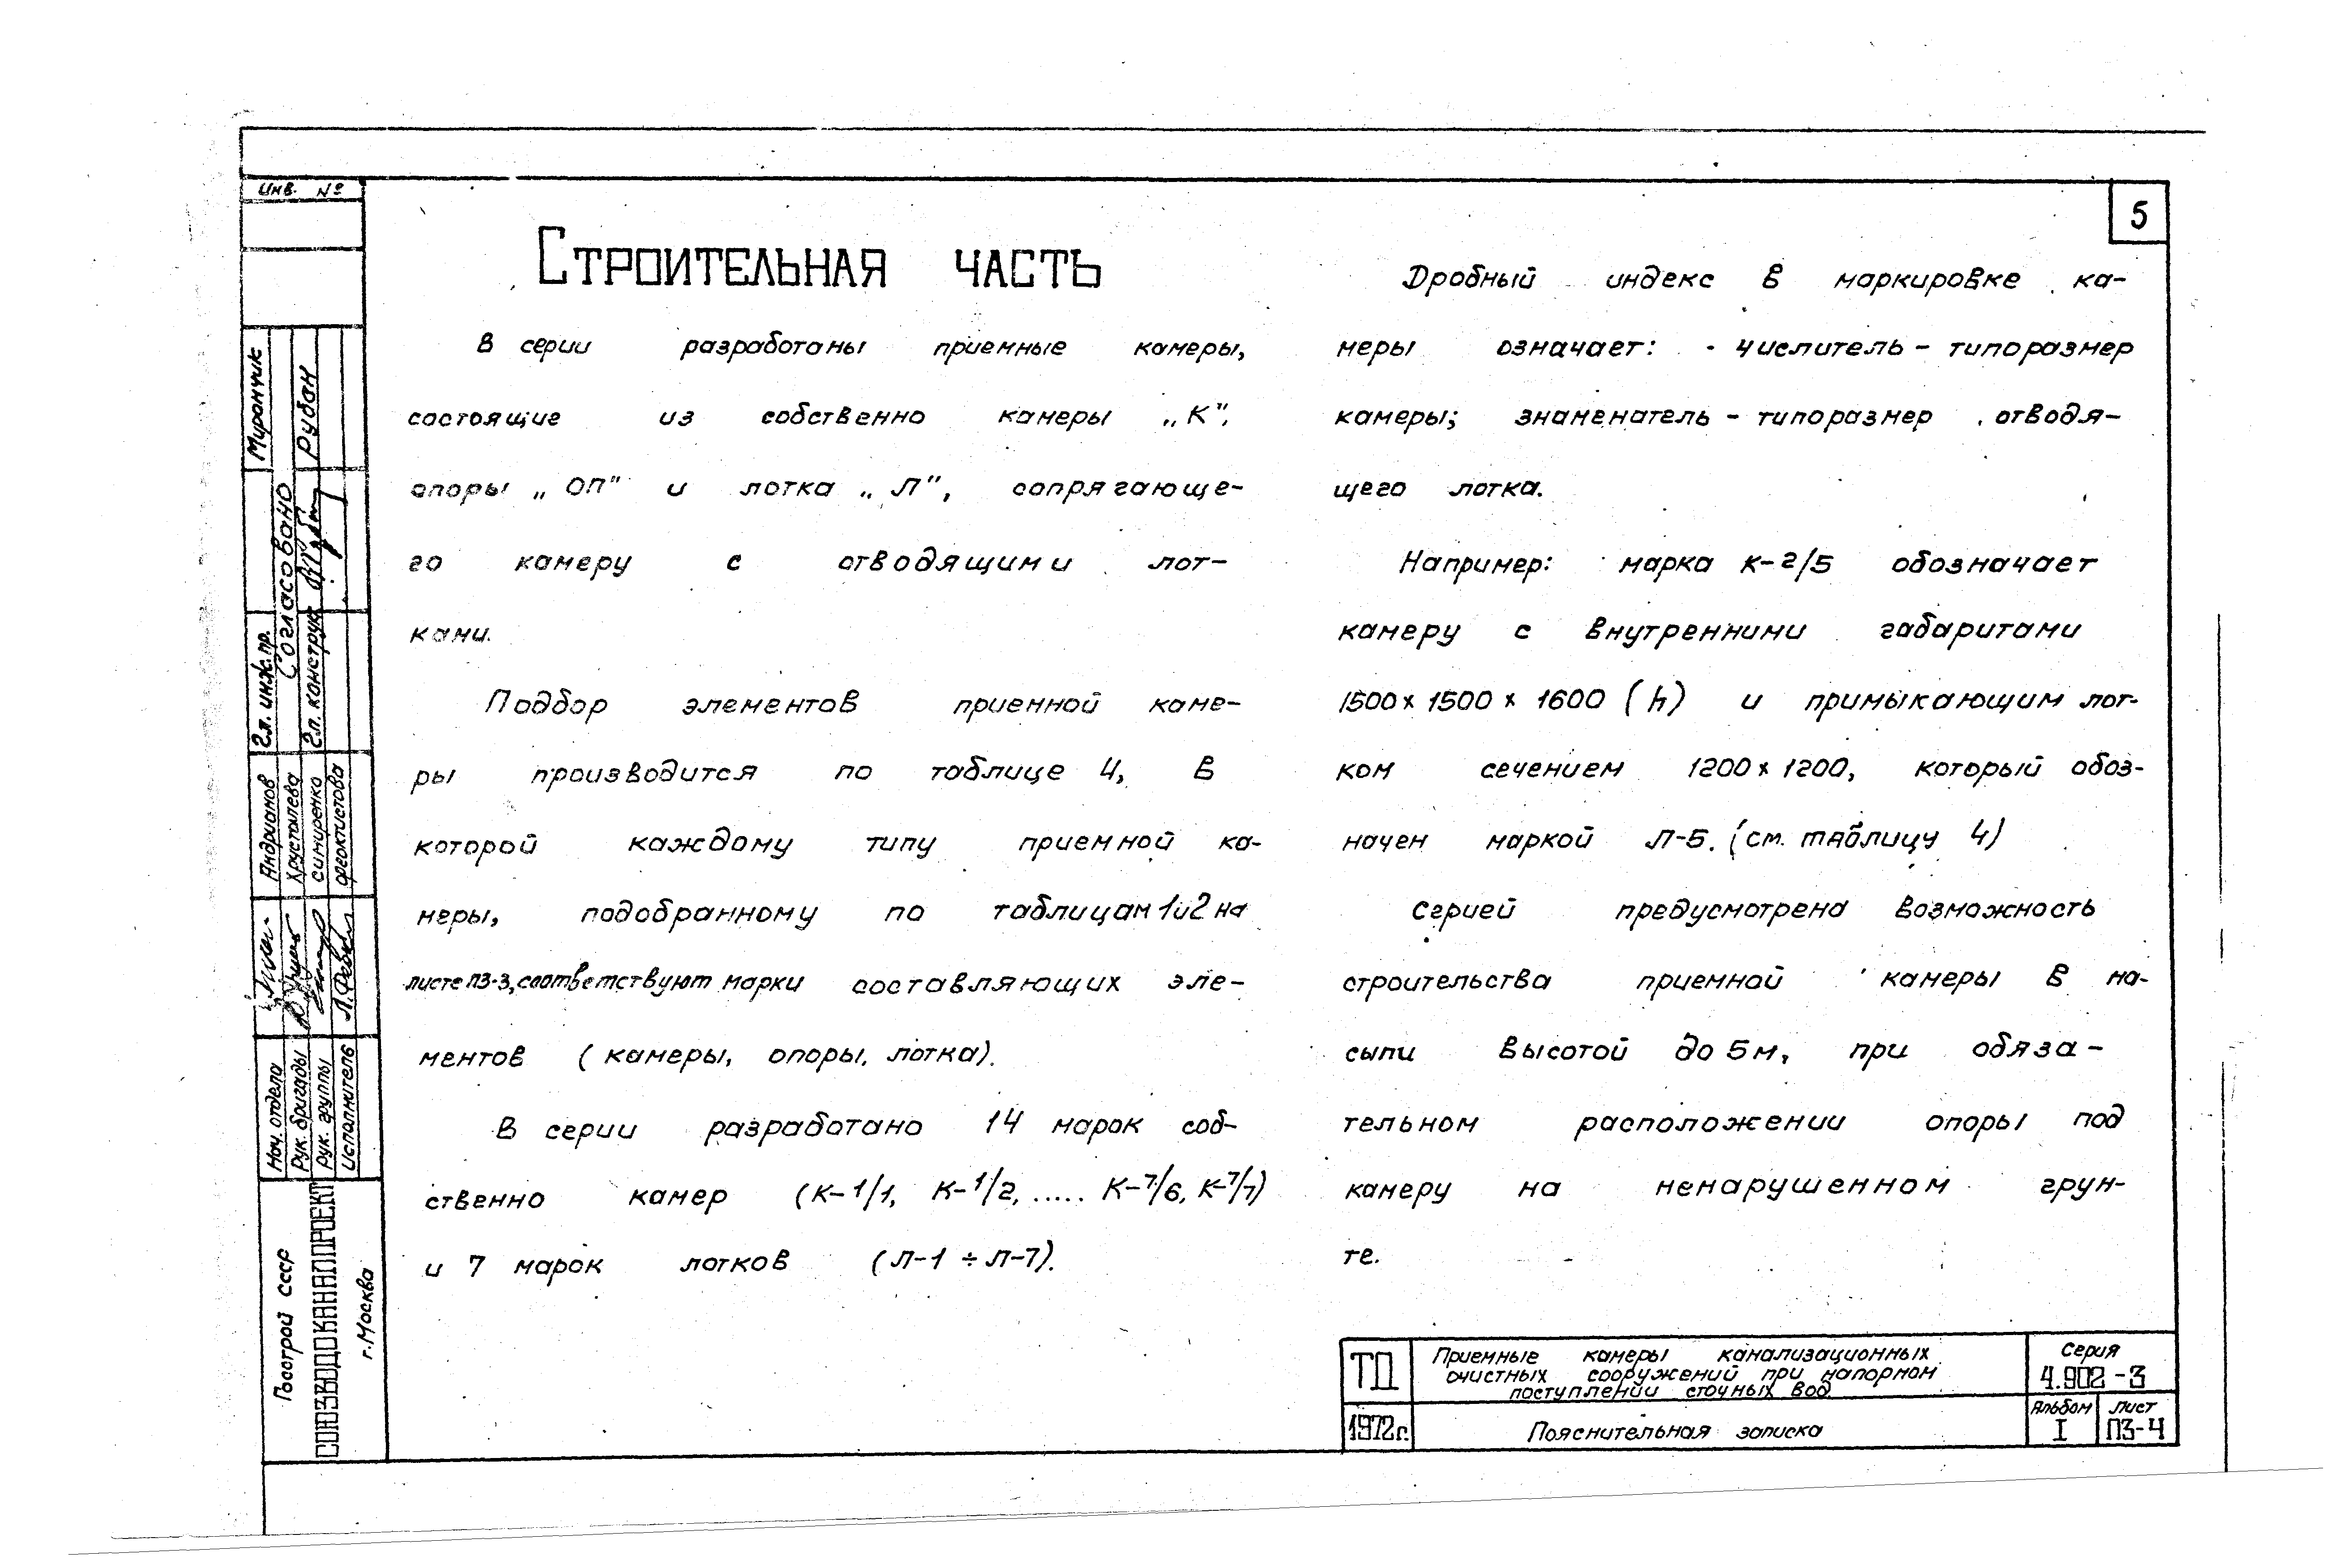 5
Строительная часть
В серии разработаны приемные камеры,
состоящие из собственно камеры „К",
опоры „ОП" и лотка „Л", сопрягающе-
го камеру с отводящими лот-
ками.
Подбор элементов приемной каме-
ры производится по таблице 4, в
которой каждому типу приемной ка-
меры, подобранному по таблицам 1и2 на
листе ПЗ-3, соответствуют марки составляющих эле-
ментов (камеры, опоры, лотка).
В серии разработано 14 марок соб-
ственно камер (К-1/1, К-1/2, ..... К-7/6, К-7/7)
и 7 марок лотков (Л-1 ÷ Л-7).
Дробный индекс в маркировке ка-
меры означает: числитель – типоразмер
камеры; знаменатель – типоразмер отводя-
щего лотка.
Например: марка К-2/5 обозначает
камеру с внутренними габаритами
1500 х 1500 х 1600 (h) и примыкающим лот-
ком сечением 1200 х 1200, который обоз-
начен маркой Л-5. (см. таблицу 4)
Серией предусмотрена возможность
строительства приемной камеры в на-
сыпи высотой до 5м, при обяза-
тельном расположении опоры под
камеру на ненарушенном грун-
те.
Инв. №
Миранчик
Рубан
Согласовано
Гл. инж. пр.
Гл. конструк
Андрианов
Хрусталева
Симиренко
Феоктистова
Нач. отдела
Рук. бригады
Рук. группы
Исполнитель
Госстрой СССР
СОЮЗВОДОКАНАЛПРОЕКТ
г. Москва
ТД
1972г.
Приемные камеры канализационных
очистных сооружений при напорном
поступлении сточных вод
Пояснительная записка
Серия
4.902-3
Альбом
I
Лист
ПЗ-4